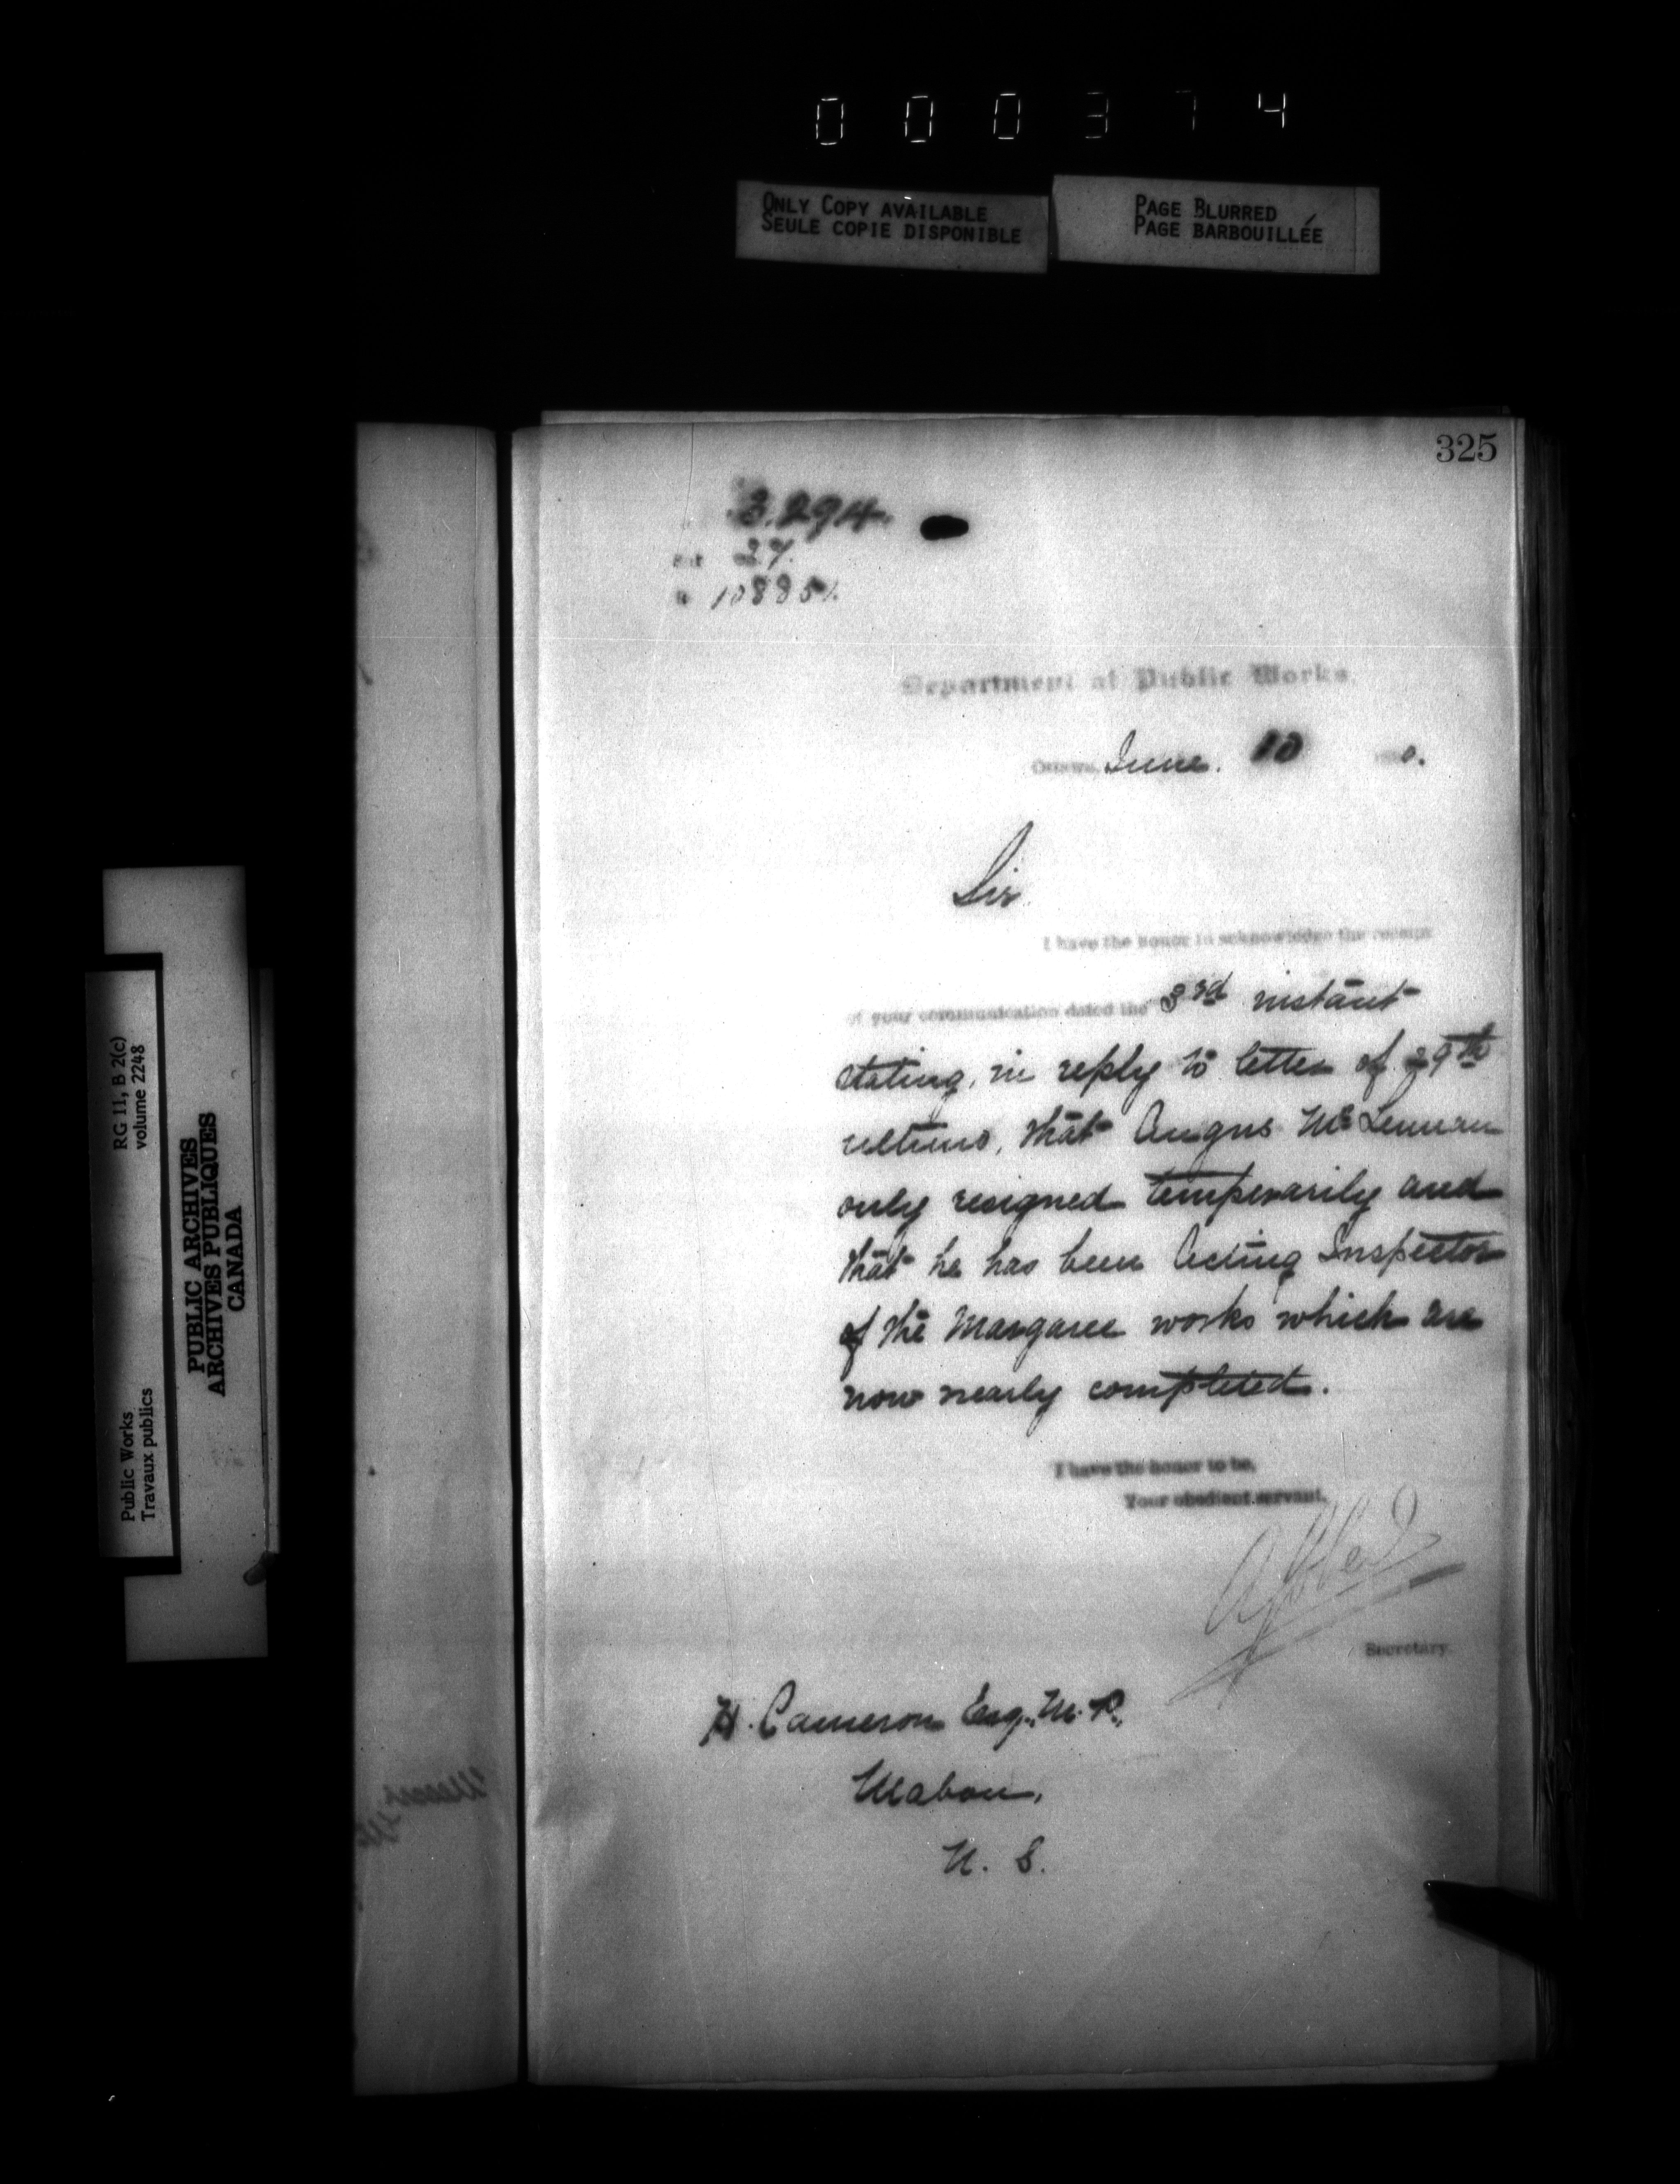 000374
ONLY COPY AVAILABLE
SEULE COPIE DISPONIBLE
PAGE BLURRED
PAGE BARBOUILLÉE
325
3.294.
27.
10885
Department of Public Works
Ottawa, June. 10 0.
Sir
I have the honor to acknowledge the receipt
of your communication dated the 3rd instant
stating, in reply to letter of 29th
ultimo, that Angus McLennan
only resigned temporarily and
that he has been Acting Inspector
of the Margaree works which are
now nearly completed.
I have the honor to be,
Your obedient servant,
Secretary.
H. Cameron Esq., M. P.,
Mabou,
N. S.
RG 11, B 2(c)
volume 2248
Public Works
Travaux publics
PUBLIC ARCHIVES
ARCHIVES PUBLIQUES
CANADA